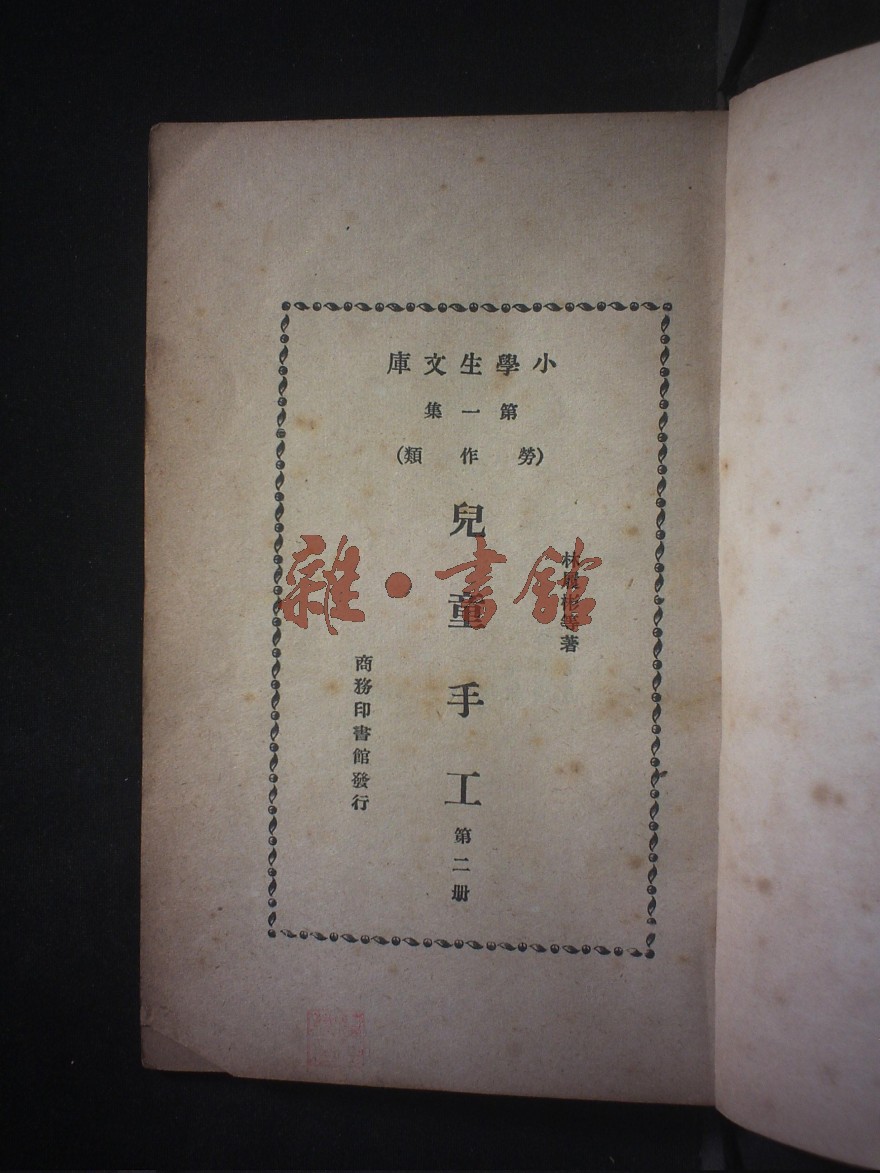 小學生文庫
第一集
(勞作類)
林履彬等著
兒童手工
第二册
商務印書館發行
雜·書館